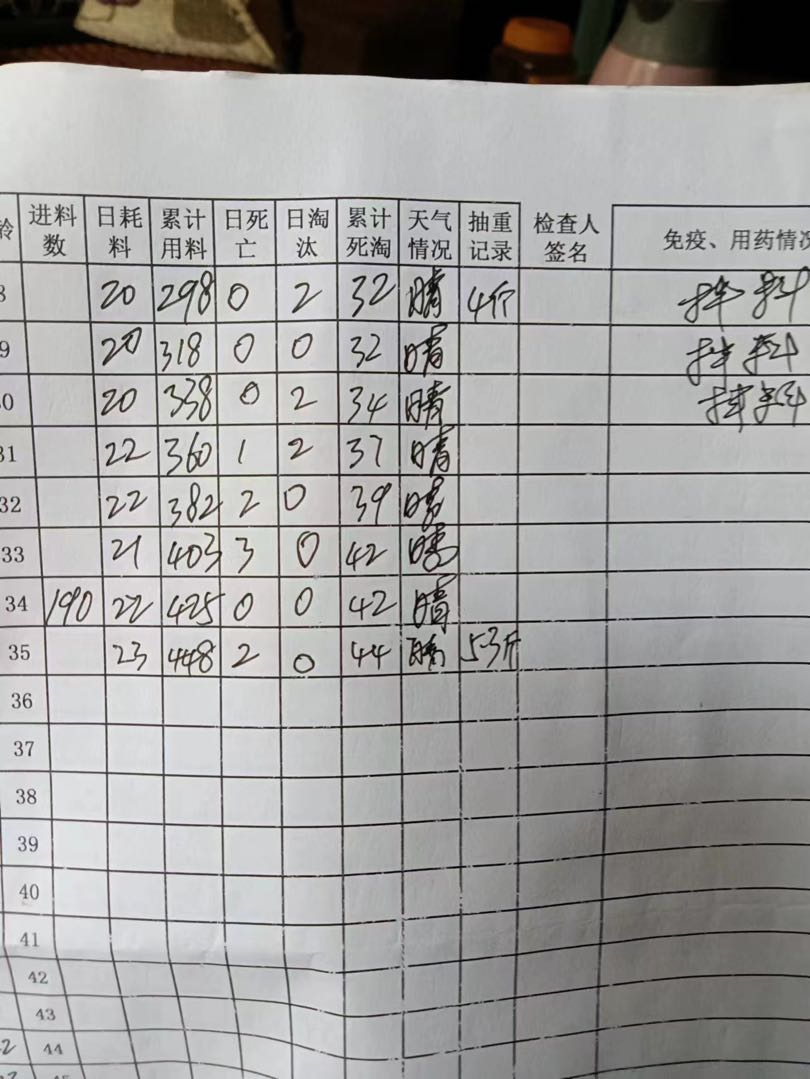 龄 进料数 日耗料 累计用料 日死亡 日淘汰 累计死淘 天气情况 抽重记录 检查人签名 免疫、用药情况
8 20 298 0 2 32 晴 4斤 拌料
9 20 318 0 0 32 晴 拌料
0 20 338 0 2 34 晴 拌料
31 22 360 1 2 37 晴
32 22 382 2 0 39 晴
33 21 403 3 0 42 晴
34 190 22 425 0 0 42 晴
35 23 448 2 0 44 晴 5.3斤
36
37
38
39
40
41
42
43
2 44